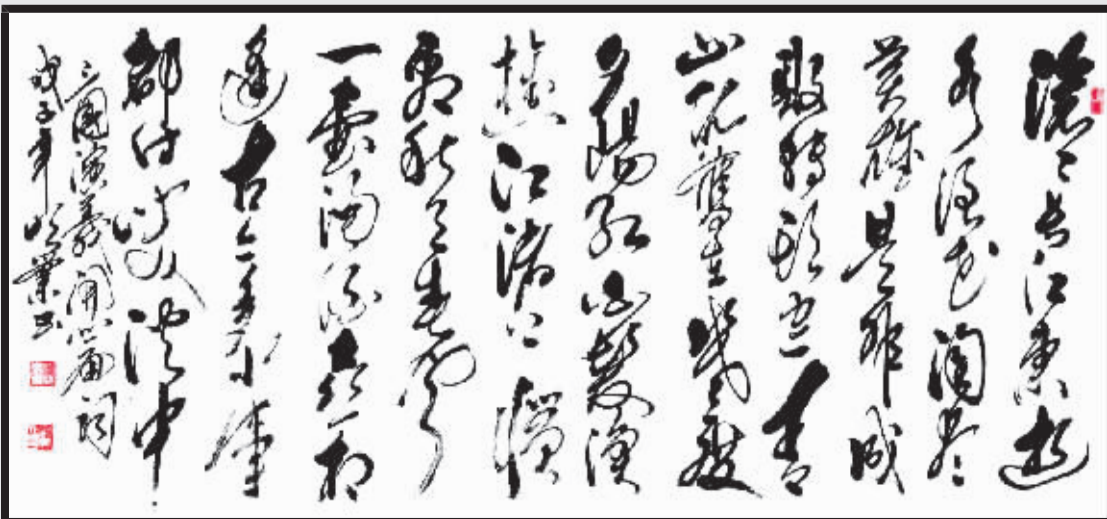 滚々长江东逝
水浪花淘尽
英雄是非成
败转头空青
山依舊在幾度
夕陽红白髮渔
樵江渚上惯
看秋月春风
一壶浊酒喜相
逢古今多少事
都付笑谈中
三國演義開篇词
戊子年業书